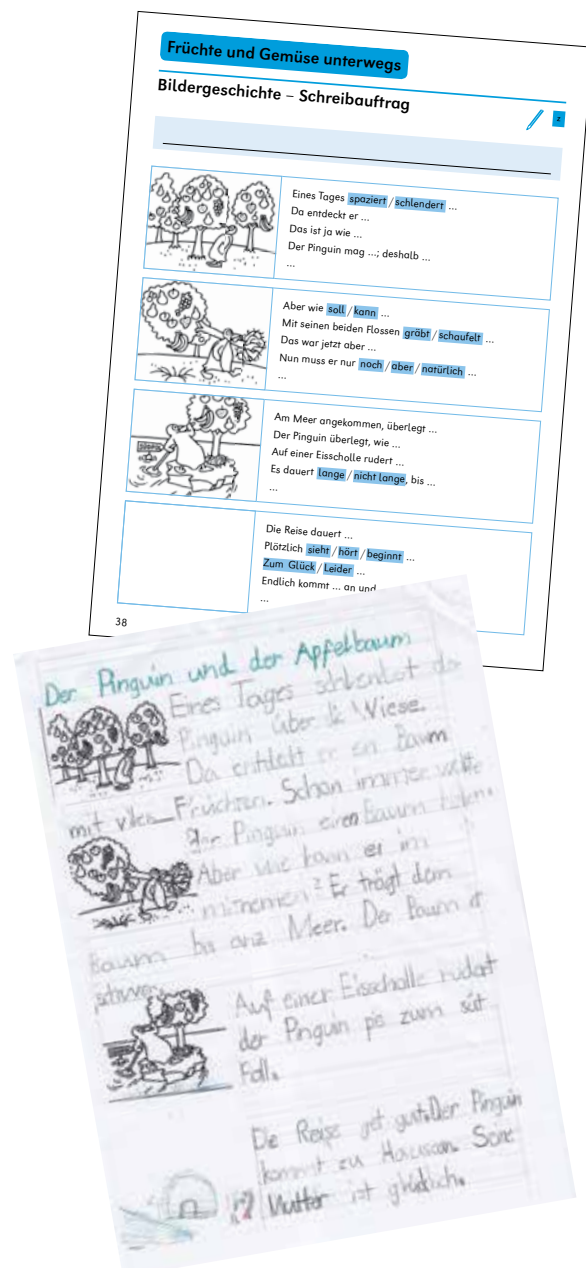 Früchte und Gemüse unterwegs
Bildergeschichte – Schreibauftrag
2
Eines Tages spaziert / schlendert ...
Da entdeckt er ...
Das ist ja wie ...
Der Pinguin mag ...; deshalb ...
...
Aber wie soll / kann ...
Mit seinen beiden Flossen gräbt / schaufelt ...
Das war jetzt aber ...
Nun muss er nur noch / aber / natürlich ...
...
Am Meer angekommen, überlegt ...
Der Pinguin überlegt, wie ...
Auf einer Eisscholle rudert ...
Es dauert lange / nicht lange, bis ...
...
Die Reise dauert ...
Plötzlich sieht / hört / beginnt ...
Zum Glück / Leider ...
Endlich kommt ... an und
...
38
Der Pinguin und der Apfelbaum
Eines Tages schlendert
Pinguin über Wiese.
Da entdekt er ein Baum
mit Früchten. Schon immer wollte
der Pinguin einen Baum
Aber wie kann er im
mitnemen? Er trägt dem
Baum bis anz Meer. Der Baum
schwer.
Auf einer Eisscholle rudert
der Pinguin pis zum süt
Foll.
Die Reise get gut. Der Pinguin
kommt zu Seine
Mutter ist glücklich.